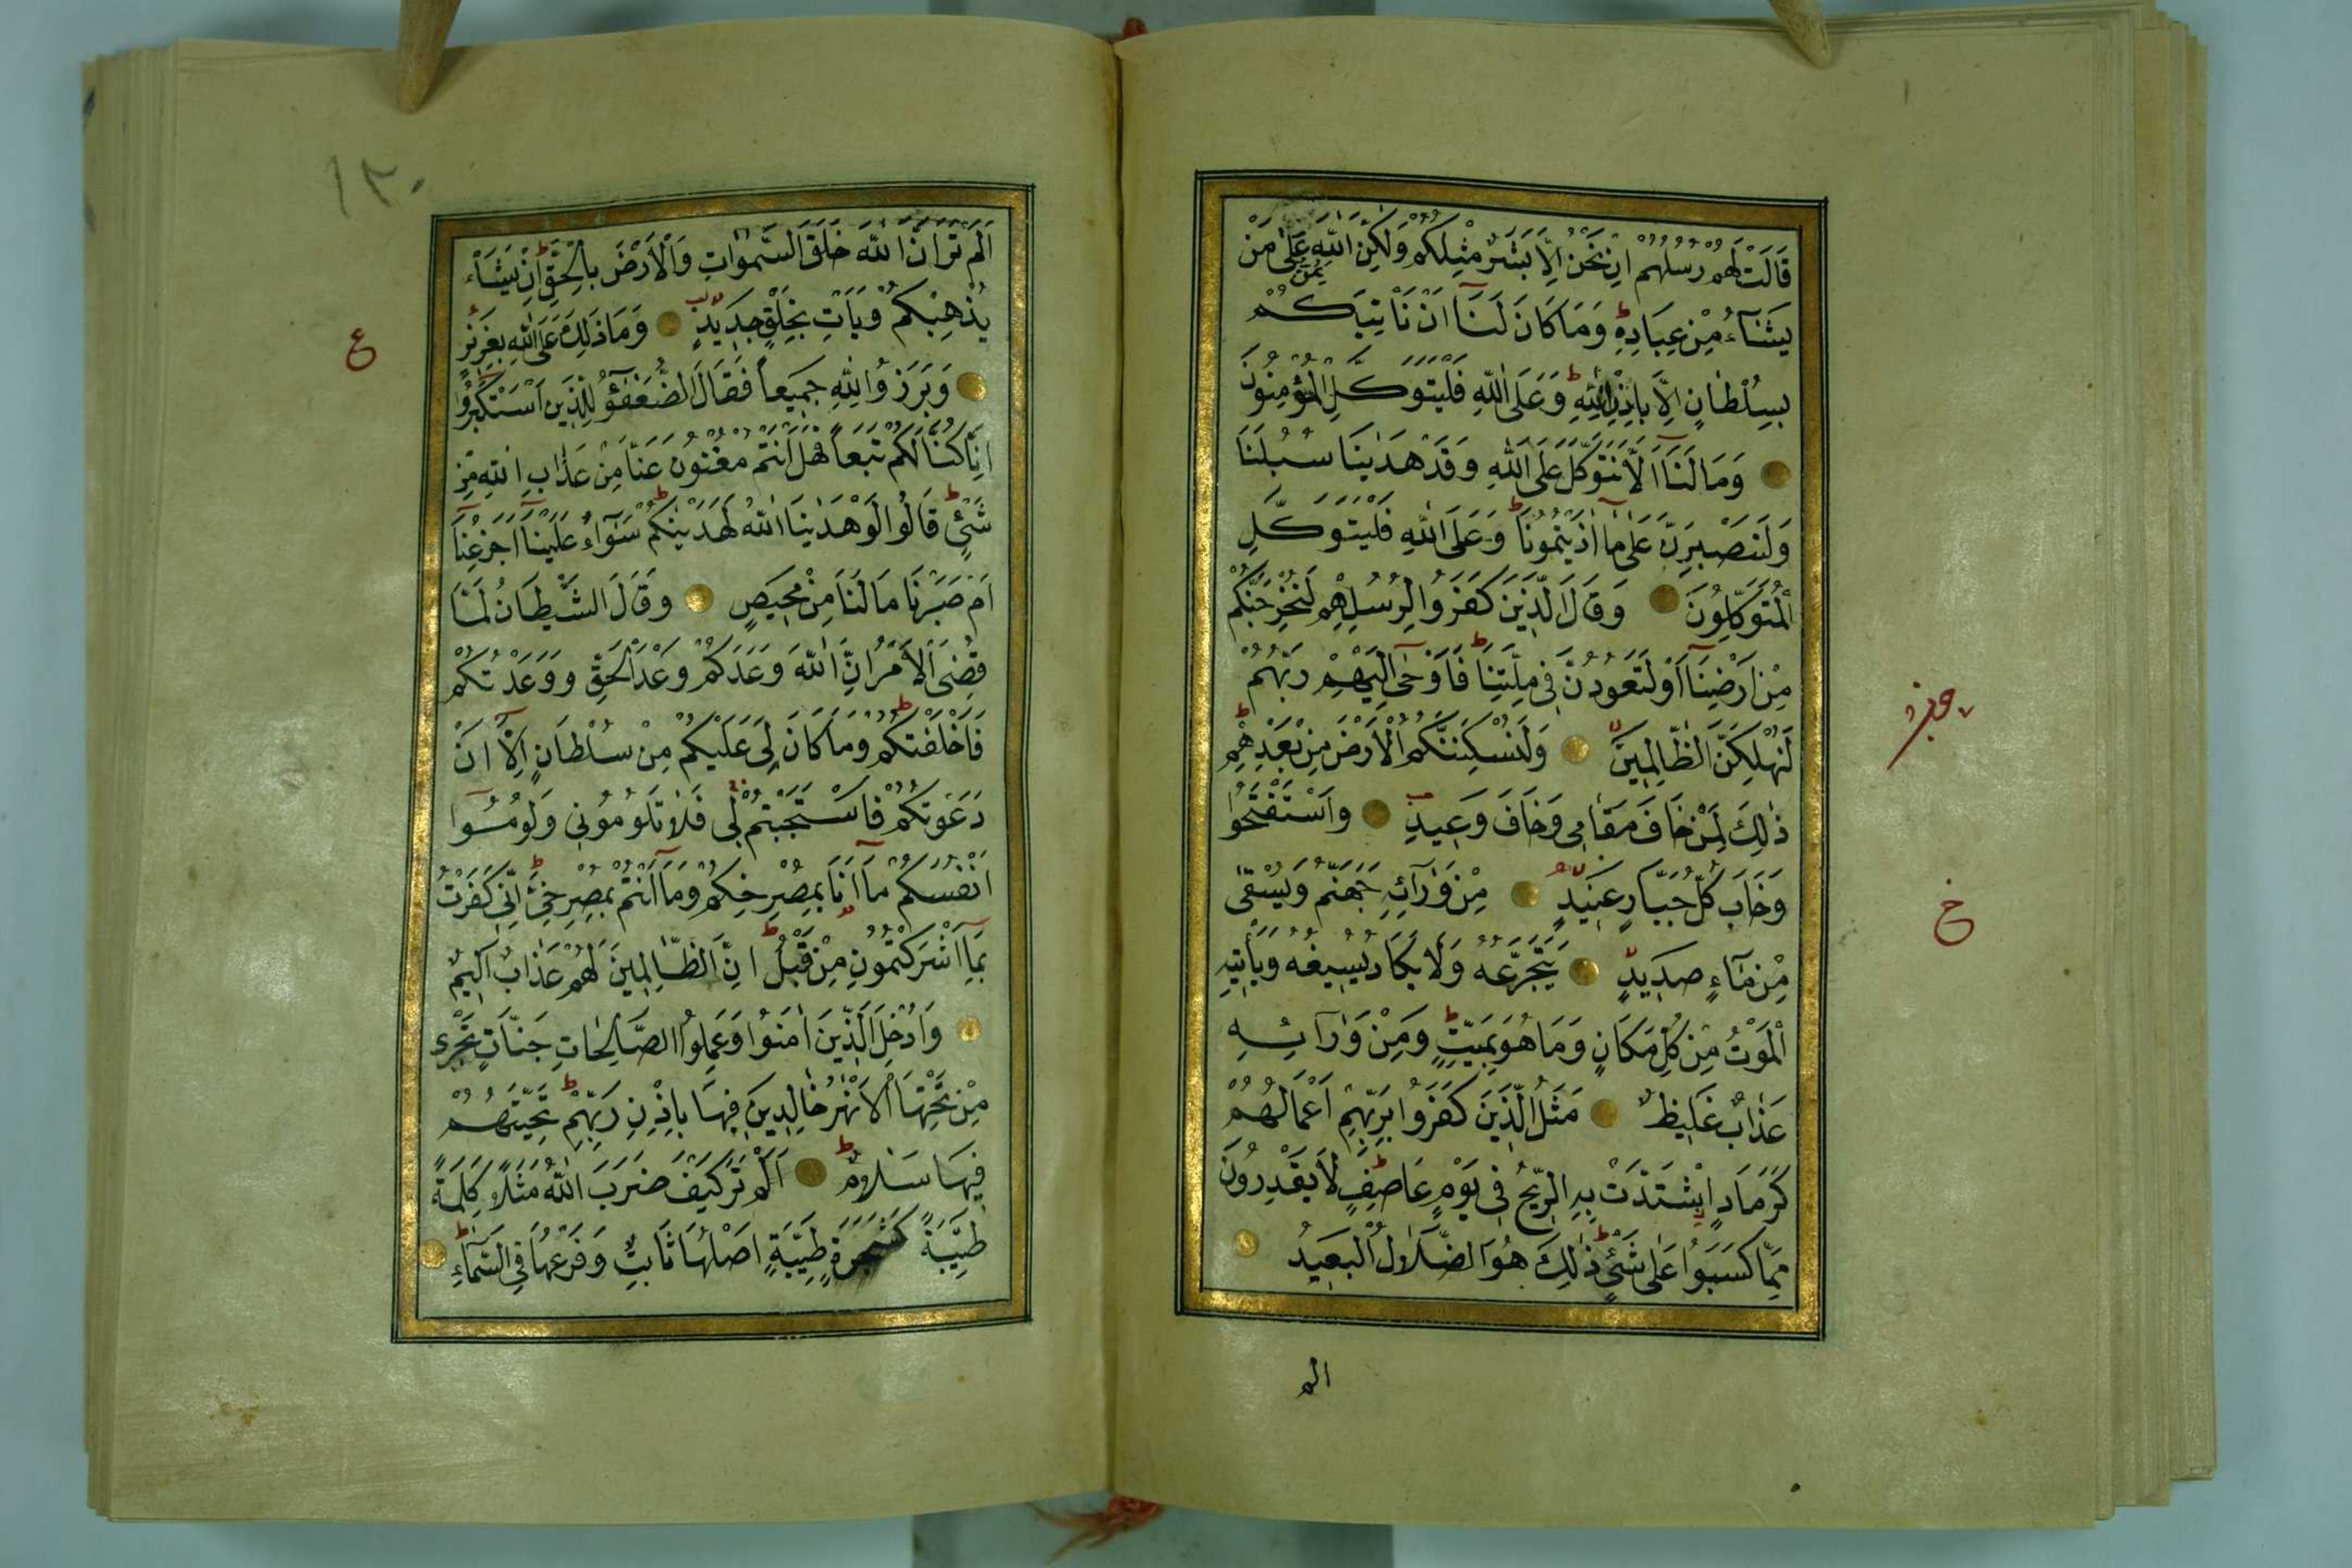 قَالَتْ لَهُمْ رُسُلُهُمْ اِنْ نَحْنُ اِلَّا بَشَرٌ مِثْلُكُمْ وَلٰكِنَّ اللّٰهَ يَمُنُّ عَلٰى مَنْ
يَشَٓاءُ مِنْ عِبَادِهِ وَمَا كَانَ لَنَٓا اَنْ نَأْتِيَكُمْ
بِسُلْطَانٍ اِلَّا بِاِذْنِ اللّٰهِ وَعَلَى اللّٰهِ فَلْيَتَوَكَّلِ الْمُؤْمِنُونَ
وَمَا لَنَٓا اَلَّا نَتَوَكَّلَ عَلَى اللّٰهِ وَقَدْ هَدٰينَا سُبُلَنَا
وَلَنَصْبِرَنَّ عَلٰى مَٓا اٰذَيْتُمُونَا وَعَلَى اللّٰهِ فَلْيَتَوَكَّلِ
الْمُتَوَكِّلُونَ وَقَالَ الَّذِينَ كَفَرُوا لِرُسُلِهِمْ لَنُخْرِجَنَّكُمْ
مِنْ اَرْضِنَٓا اَوْ لَتَعُودُنَّ فِي مِلَّتِنَا فَاَوْحٰٓى اِلَيْهِمْ رَبُّهُمْ
لَنُهْلِكَنَّ الظَّالِمِينَ وَلَنُسْكِنَنَّكُمُ الْاَرْضَ مِنْ بَعْدِهِمْ
ذٰلِكَ لِمَنْ خَافَ مَقَامِي وَخَافَ وَعِيدِ وَاسْتَفْتَحُوا
وَخَابَ كُلُّ جَبَّارٍ عَنِيدٍ مِنْ وَرَٓائِهِ جَهَنَّمُ وَيُسْقٰى
مِنْ مَٓاءٍ صَدِيدٍ يَتَجَرَّعُهُ وَلَا يَكَادُ يُسِيغُهُ وَيَأْتِيهِ
الْمَوْتُ مِنْ كُلِّ مَكَانٍ وَمَا هُوَ بِمَيِّتٍ وَمِنْ وَرَٓائِهِ
عَذَابٌ غَلِيظٌ مَثَلُ الَّذِينَ كَفَرُوا بِرَبِّهِمْ اَعْمَالُهُمْ
كَرَمَادٍ اشْتَدَّتْ بِهِ الرِّيحُ فِي يَوْمٍ عَاصِفٍ لَا يَقْدِرُونَ
مِمَّا كَسَبُوا عَلٰى شَيْءٍ ذٰلِكَ هُوَ الضَّلَالُ الْبَعِيدُ
الم
خ
١٣٠
اَلَمْ تَرَ اَنَّ اللّٰهَ خَلَقَ السَّمٰوَاتِ وَالْاَرْضَ بِالْحَقِّ اِنْ يَشَأْ
يُذْهِبْكُمْ وَيَأْتِ بِخَلْقٍ جَدِيدٍ وَمَا ذٰلِكَ عَلَى اللّٰهِ بِعَزِيزٍ
وَبَرَزُوا لِلّٰهِ جَمِيعاً فَقَالَ الضُّعَفٰٓؤُ لِلَّذِينَ اسْتَكْبَرُٓوا
اِنَّا كُنَّا لَكُمْ تَبَعاً فَهَلْ اَنْتُمْ مُغْنُونَ عَنَّا مِنْ عَذَابِ اللّٰهِ مِنْ
شَيْءٍ قَالُوا لَوْ هَدٰينَا اللّٰهُ لَهَدَيْنَاكُمْ سَوَٓاءٌ عَلَيْنَٓا اَجَزِعْنَٓا
اَمْ صَبَرْنَا مَا لَنَا مِنْ مَحِيصٍ وَقَالَ الشَّيْطَانُ لَمَّا
قُضِيَ الْاَمْرُ اِنَّ اللّٰهَ وَعَدَكُمْ وَعْدَ الْحَقِّ وَوَعَدْتُكُمْ
فَاَخْلَفْتُكُمْ وَمَا كَانَ لِي عَلَيْكُمْ مِنْ سُلْطَانٍ اِلَّٓا اَنْ
دَعَوْتُكُمْ فَاسْتَجَبْتُمْ لِي فَلَا تَلُومُونِي وَلُومُٓوا
اَنْفُسَكُمْ مَٓا اَنَا بِمُصْرِخِكُمْ وَمَٓا اَنْتُمْ بِمُصْرِخِيَّ اِنِّي كَفَرْتُ
بِمَٓا اَشْرَكْتُمُونِ مِنْ قَبْلُ اِنَّ الظَّالِمِينَ لَهُمْ عَذَابٌ اَلِيمٌ
وَاُدْخِلَ الَّذِينَ اٰمَنُوا وَعَمِلُوا الصَّالِحَاتِ جَنَّاتٍ تَجْرِي
مِنْ تَحْتِهَا الْاَنْهَارُ خَالِدِينَ فِيهَا بِاِذْنِ رَبِّهِمْ تَحِيَّتُهُمْ
فِيهَا سَلَامٌ اَلَمْ تَرَ كَيْفَ ضَرَبَ اللّٰهُ مَثَلاً كَلِمَةً
طَيِّبَةً كَشَجَرَةٍ طَيِّبَةٍ اَصْلُهَا ثَابِتٌ وَفَرْعُهَا فِي السَّمَٓاءِ
ع